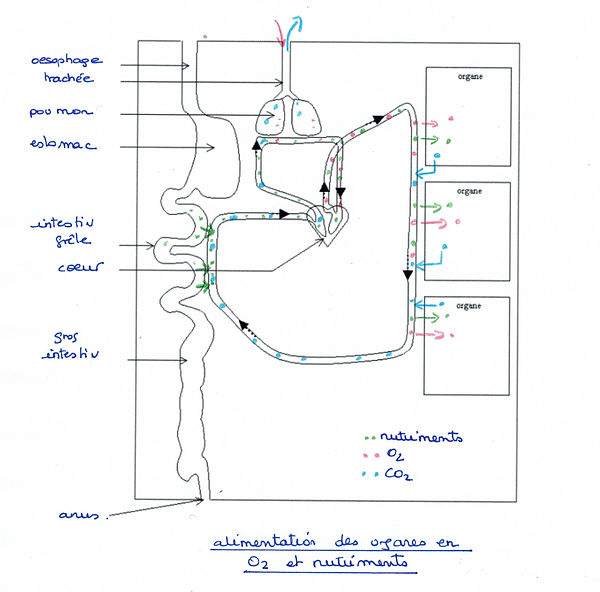 oesophage
trachée
poumon
estomac
intestin
grêle
coeur
gros
intestin
anus
organe
organe
organe
nutriments
O2
CO2
alimentation des organes en
O2 et nutriments